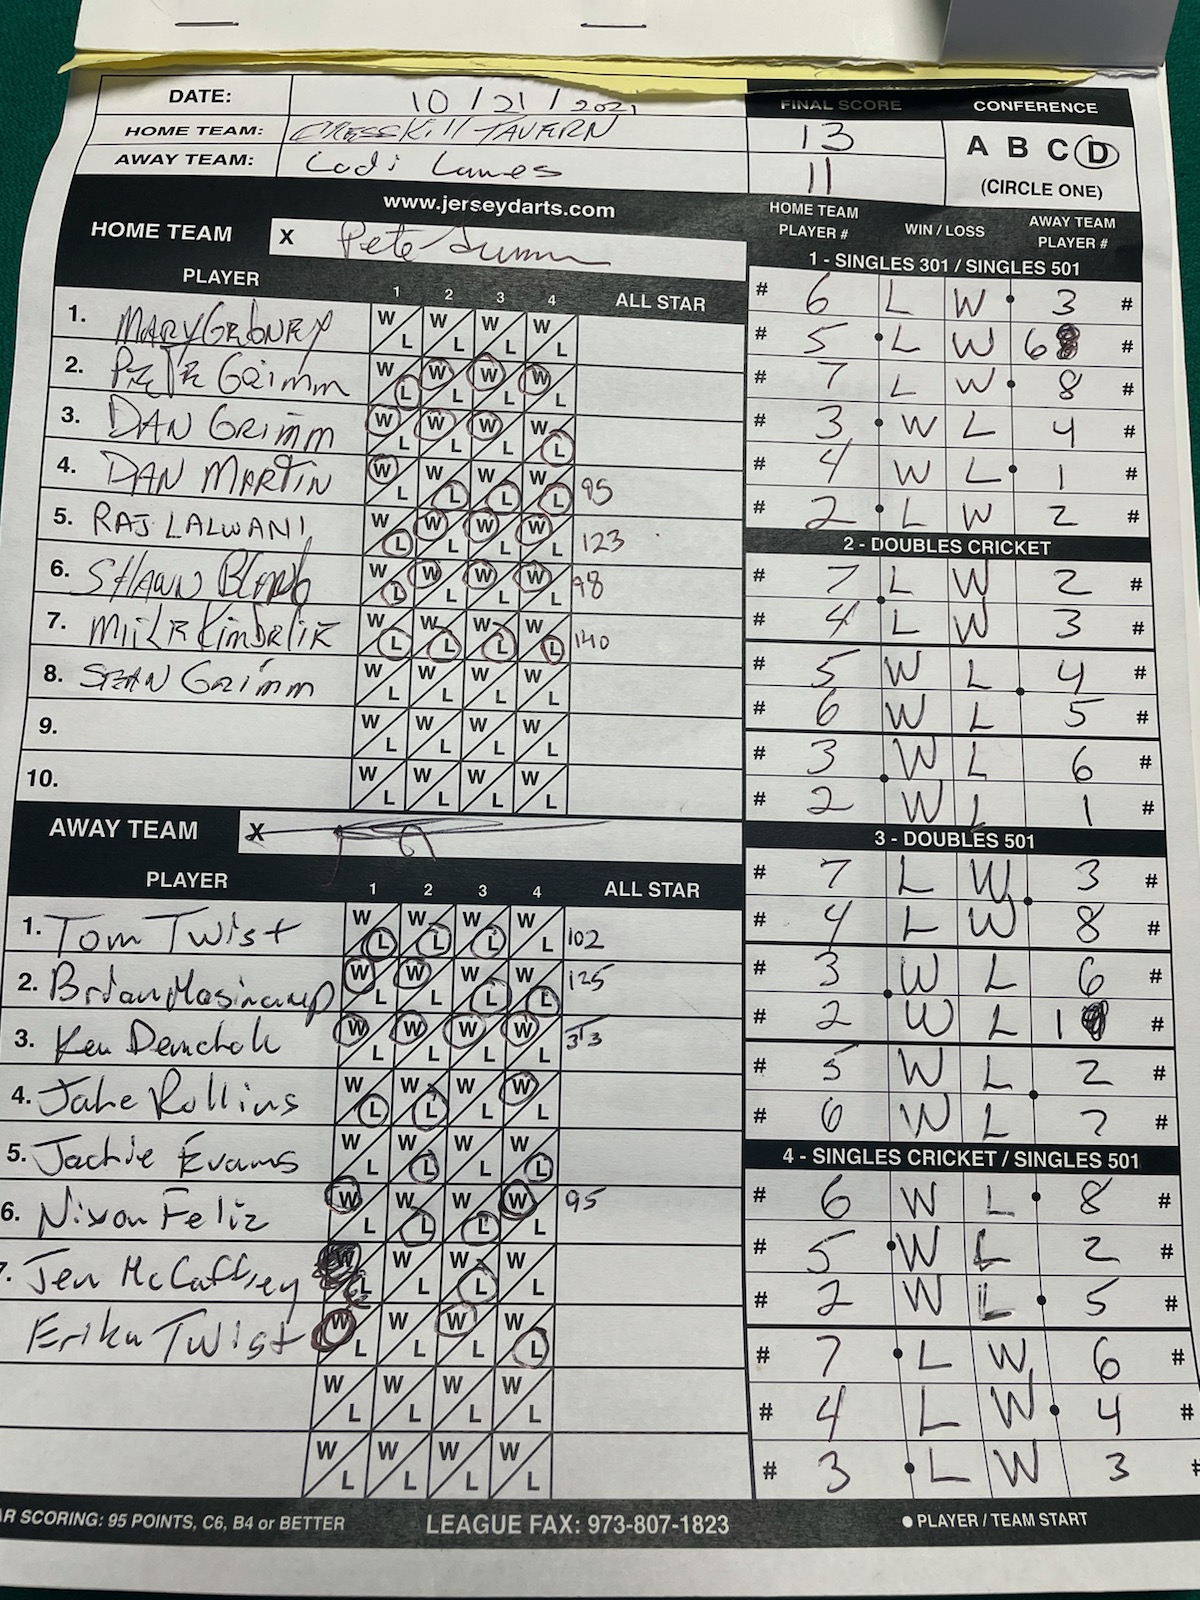 DATE: 10/21/2021
HOME TEAM: CRESSKill TAVERN
AWAY TEAM: Lodi Lanes
FINAL SCORE
13
11
CONFERENCE
A B C D
(CIRCLE ONE)
www.jerseydarts.com
HOME TEAM X Pete
PLAYER 1 2 3 4 ALL STAR
1. MARY W L W L W L W L
2. PETE GRimm W L W L W L W L
3. DAN GRimm W L W L W L W L
4. DAN MARTIN W L W L W L W L 95
5. RAJ LALWANI W L W L W L W L 123
6. SHAWN W L W L W L W L 98
7. W L W L W L W L 140
8. SEAN GRimm W L W L W L W L
9. W L W L W L W L
10. W L W L W L W L
AWAY TEAM X
PLAYER 1 2 3 4 ALL STAR
1. Tom Twist W L W L W L W L 102
2. Brian W L W L W L W L 125
3. Ken Demchak W L W L W L W L
4. Jake Rollins W L W L W L W L
5. Jackie Evans W L W L W L W L
6. Nixon Feliz W L W L W L W L 95
7. Jen McCaffrey W L W L W L W L
Erika Twist W L W L W L W L
W L W L W L W L
W L W L W L W L
HOME TEAM PLAYER # WIN / LOSS AWAY TEAM PLAYER #
1 - SINGLES 301 / SINGLES 501
# 6 L W 3 #
# 5 L W 6 #
# 7 L W 8 #
# 3 W L 4 #
# 4 W L 1 #
# 2 L W 2 #
2 - DOUBLES CRICKET
# 7 L W 2 #
# 4 L W 3 #
# 5 W L 4 #
# 6 W L 5 #
# 3 W L 6 #
# 2 W L 1 #
3 - DOUBLES 501
# 7 L W 3 #
# 4 L W 8 #
# 3 W L 6 #
# 2 W L 1 #
# 5 W L 2 #
# 6 W L 7 #
4 - SINGLES CRICKET / SINGLES 501
# 6 W L 8 #
# 5 W L 2 #
# 2 W L 5 #
# 7 L W 6 #
# 4 L W 4 #
# 3 L W 3 #
AR SCORING: 95 POINTS, C6, B4 or BETTER
LEAGUE FAX: 973-807-1823
PLAYER / TEAM START